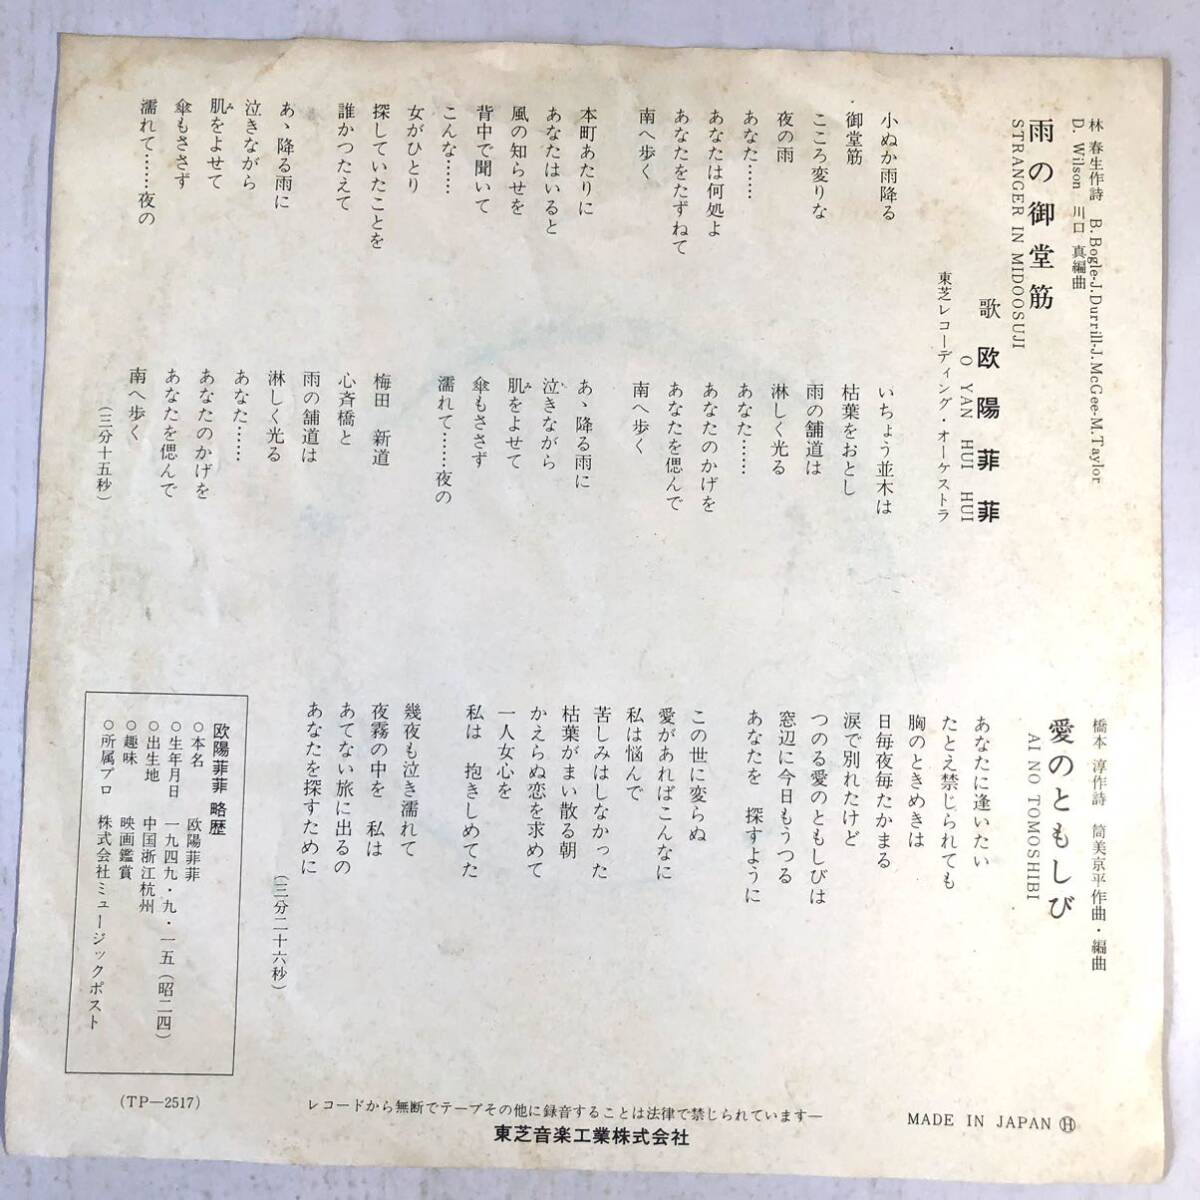 林 春生作詩 B.Bogle-J.Durrill-J.McGee-M.Taylor
D. Wilson 川口 真編曲
雨の御堂筋
STRANGER IN MIDOOSUJI
歌 欧陽菲菲
O YAN HUI HUI
東芝レコーディング・オーケストラ
小ぬか雨降る
御堂筋
こころ変りな
夜の雨
あなた……
あなたは何処よ
あなたをたずねて
南へ歩く
本町あたりに
あなたはいると
風の知らせを
背中で聞いて
こんな……
女がひとり
探していたことを
誰かつたえて
あゝ降る雨に
泣きながら
肌をよせて
み
傘もささず
濡れて……夜の
いちょう並木は
枯葉をおとし
雨の舗道は
淋しく光る
あなた……
あなたのかげを
あなたを偲んで
南へ歩く
あゝ降る雨に
泣きながら
肌をよせて
み
傘もささず
濡れて……夜の
梅田 新道
心斉橋と
雨の舗道は
淋しく光る
あなた……
あなたのかげを
あなたを偲んで
南へ歩く
(三分十五秒)
橋本 淳作詩 筒美京平作曲・編曲
愛のともしび
AI NO TOMOSHIBI
あなたに逢いたい
たとえ禁じられても
胸のときめきは
日毎夜毎たかまる
涙で別れたけど
つのる愛のともしびは
窓辺に今日もうつる
あなたを 探すように
この世に変らぬ
愛があればこんなに
私は悩んで
苦しみはしなかった
枯葉がまい散る朝
かえらぬ恋を求めて
一人女心を
私は 抱きしめてた
幾夜も泣き濡れて
夜霧の中を 私は
あてない旅に出るの
あなたを探すために
(三分二十六秒)
欧陽菲菲 略歴
○本名 欧陽菲菲
○生年月日 一九四九・九・一五(昭二四)
○出生地 中国浙江杭州
○趣味 映画鑑賞
○所属プロ 株式会社ミュージックポスト
(TP—2517)
レコードから無断でテープその他に録音することは法律で禁じられています—
東芝音楽工業株式会社
MADE IN JAPAN Ⓗ